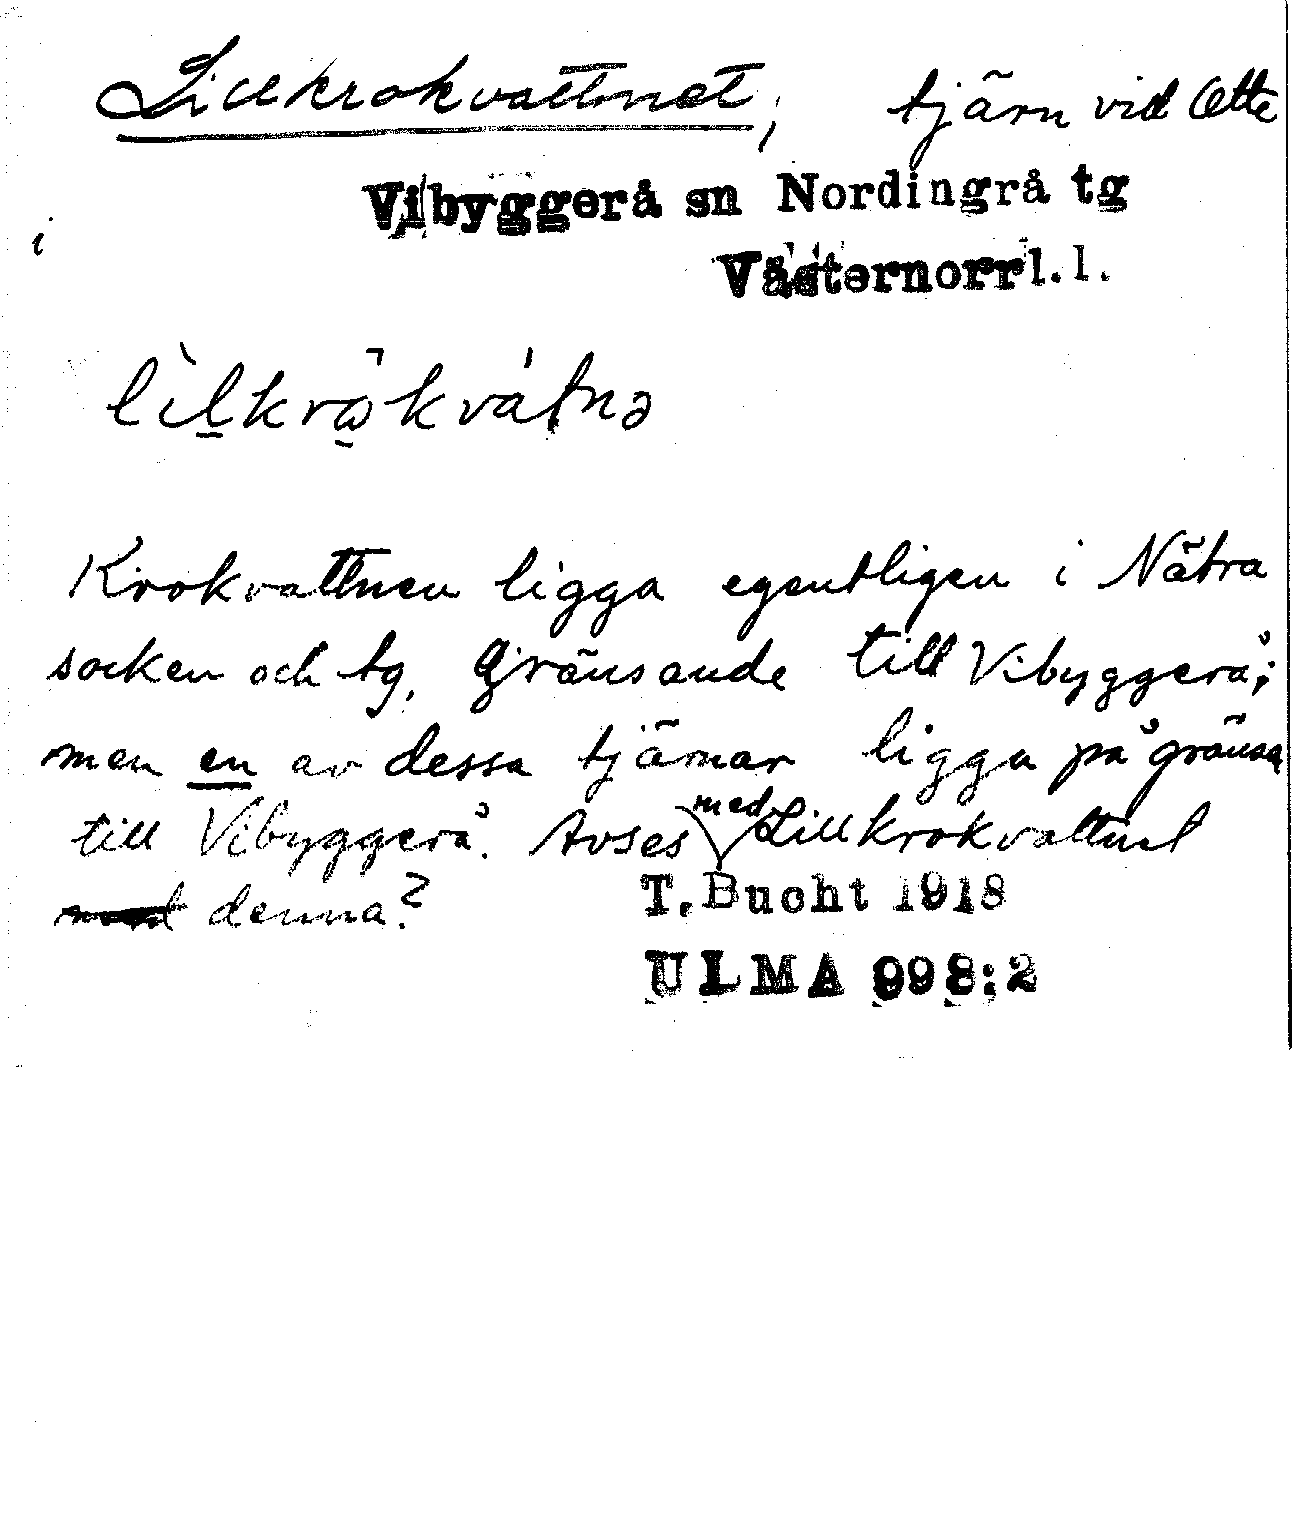 Lillkrokvattnet, tjärn vid Ætte
Vibyggerå sn Nordingrå tg
i
Västernorrl. l.
Krokvattnen ligga egentligen i Nätra
socken och tg, gränsande till Vibyggerå;
men en av dessa tjärnar ligga på gränsa
till Vibyggerå. Avses med Lillkrokvattnet
denna?
T. Bucht 1918
ULMA 998:2